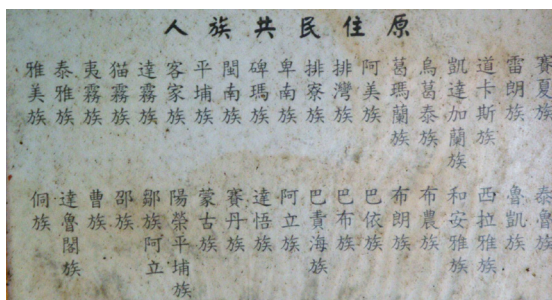 原住民共族人
賽夏族
雷朗族
道卡斯族
凱達加蘭族
烏葛泰族
葛瑪蘭族
阿美族
排灣族
排寮族
卑南族
碑瑪族
閩南族
平埔族
客家族
達霧族
猫霧族
夷霧族
泰雅族
雅美族
泰魯族
魯凱族
西拉雅族
和安雅族
布農族
布朗族
巴依族
巴布族
巴責海族
阿立族
達悟族
賽丹族
蒙古族
陽榮平埔族
鄒族阿立
邵族
曹族
達魯閣族
侗族